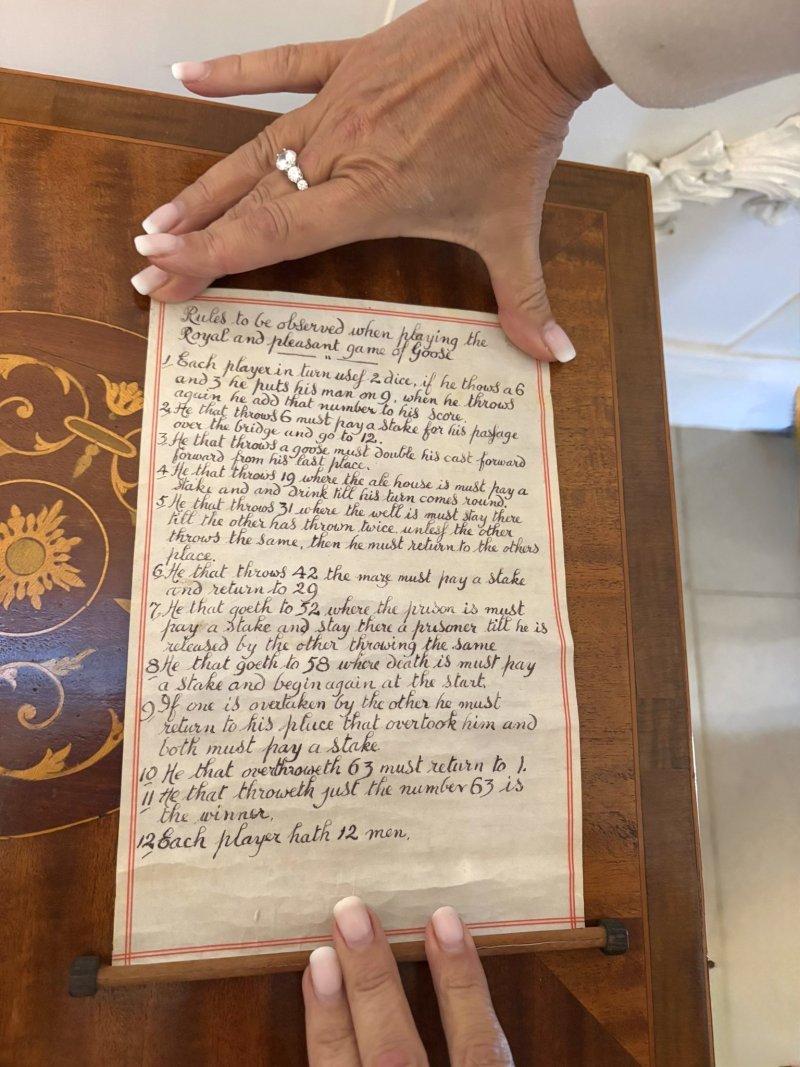 Rules to be observed when playing the
Royal and pleasant game of Goose
"
1 Each player in turn uses 2 dice, if he thows a 6
and 3 he puts his man on 9, when he throws
again he add that number to his score.
2, He that throws 6 must pay a stake for his passage
over the bridge and go to 12.
3. He that throws a goose must double his cast forward
forward from his last place.
4. He that throws 19 where the ale house is must pay a
stake and and drink till his turn comes round.
5. He that throws 31 where the well is must stay there
till the other has thrown twice, unless the other
throws the same, then he must return to the others
place.
6. He that throws 42 the maze must pay a stake
and return to 29
7, He that goeth to 52 where the prison is must
pay a stake and stay there a prisoner till he is
released by the other throwing the same
8 He that goeth to 58 where death is must pay
a stake and begin again at the start.
9 If one is overtaken by the other he must
return to his place that overtook him and
both must pay a stake
10 He that overthroweth 63 must return to 1.
11 He that throweth just the number 63 is
the winner.
12 Each player hath 12 men.